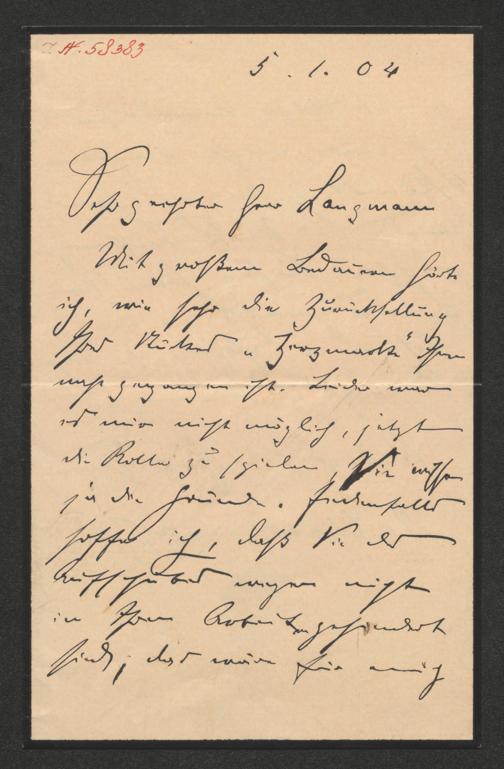 I.N. 58383
5. 1. 04
Sehr geehrter Herr Langmann
Mit großem Bedauern hörte
ich, wie sehr die Zurückstellung
Ihres Stückes „ Herzmarke“ Ihnen
nahe gegangen ist. Leider war
es mir nicht möglich, jetzt
die Rolle zu spielen, Sie wissen
ja die Gründe. Jedenfalls
hoffe ich, daß Sie des
Aufschubes wegen nicht
in Ihren Arbeiten gehindert
sind, das wäre für mich